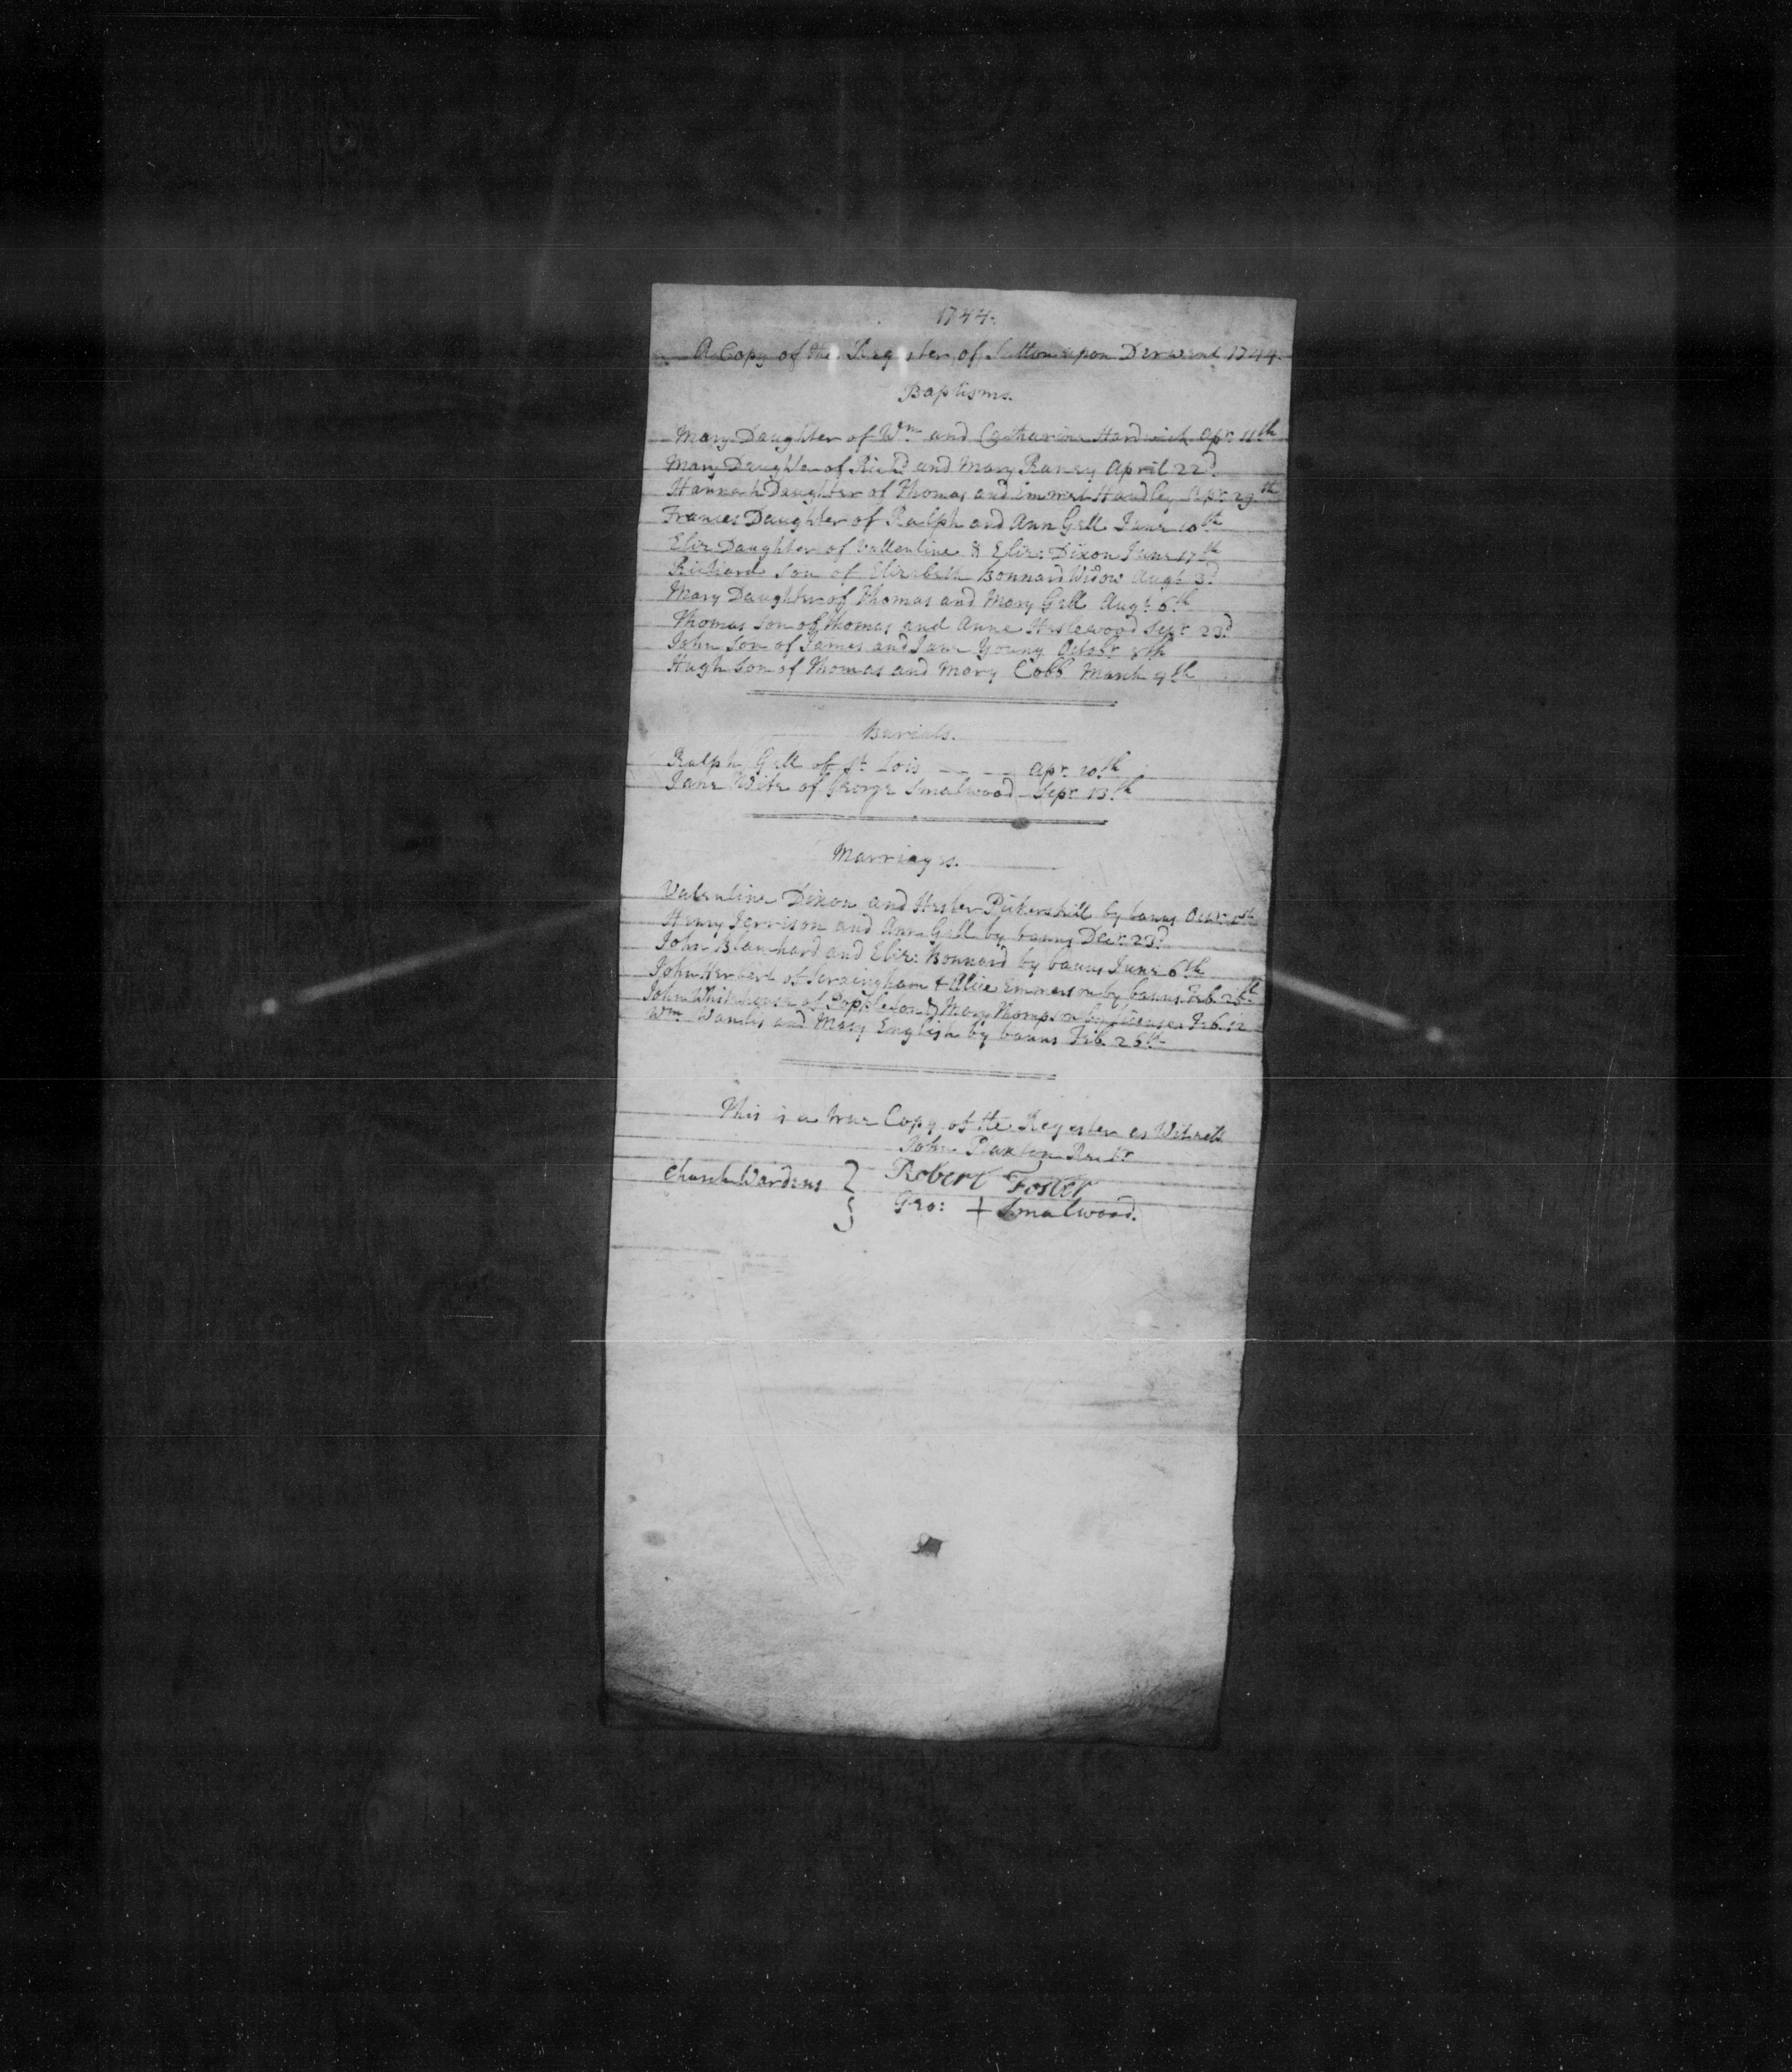 1744.
A Copy of the Register of Sutton upon Derwent 1744.
Baptisms.
Mary Daughter of Wm and Catharine Hardwick Apr 11th
Mary Daughter of Richd and Mary Raney April 22d
Hannah Daughter of Thomas and Handley Apr 29th
Frances Daughter of Ralph and Ann Gell June 10th
Eliz Daughter of Vallentine & Eliz: Dixon June 17th
Richard Son of Elizabeth Bonnard Widow Augt 3d
Mary Daughter of Thomas and Mary Gell Augt 6th
Thomas Son of Thomas and Anne Heslewood Sepr 23d
John Son of James and Jane Young Octobr 8th
Hugh Son of Thomas and Mary Cobb March 9th
Burials.
Ralph Gell of St Lois Apr 10th
Jane Wife of George Smalwood Sepr 13th
Marriages.
Valentine Dixon and Hester Pickerskill by banns
Henry Jerrison and Ann Gell by banns Decr 23d
John Blanchard and Eliz: Bonnard by banns June 6th
John Herbert of Scraingham & Alice Emmerson by banns Feb. 26th
John Whitehouse of Poppleton & Mary Thompson by License Feb. 12
Wm Wandis and Mary English by banns Feb. 26th
This is a true Copy of the Register as Witness
John Paxton Rectr
Church Wardens } Robert Foster
Geo: + Smalwood.